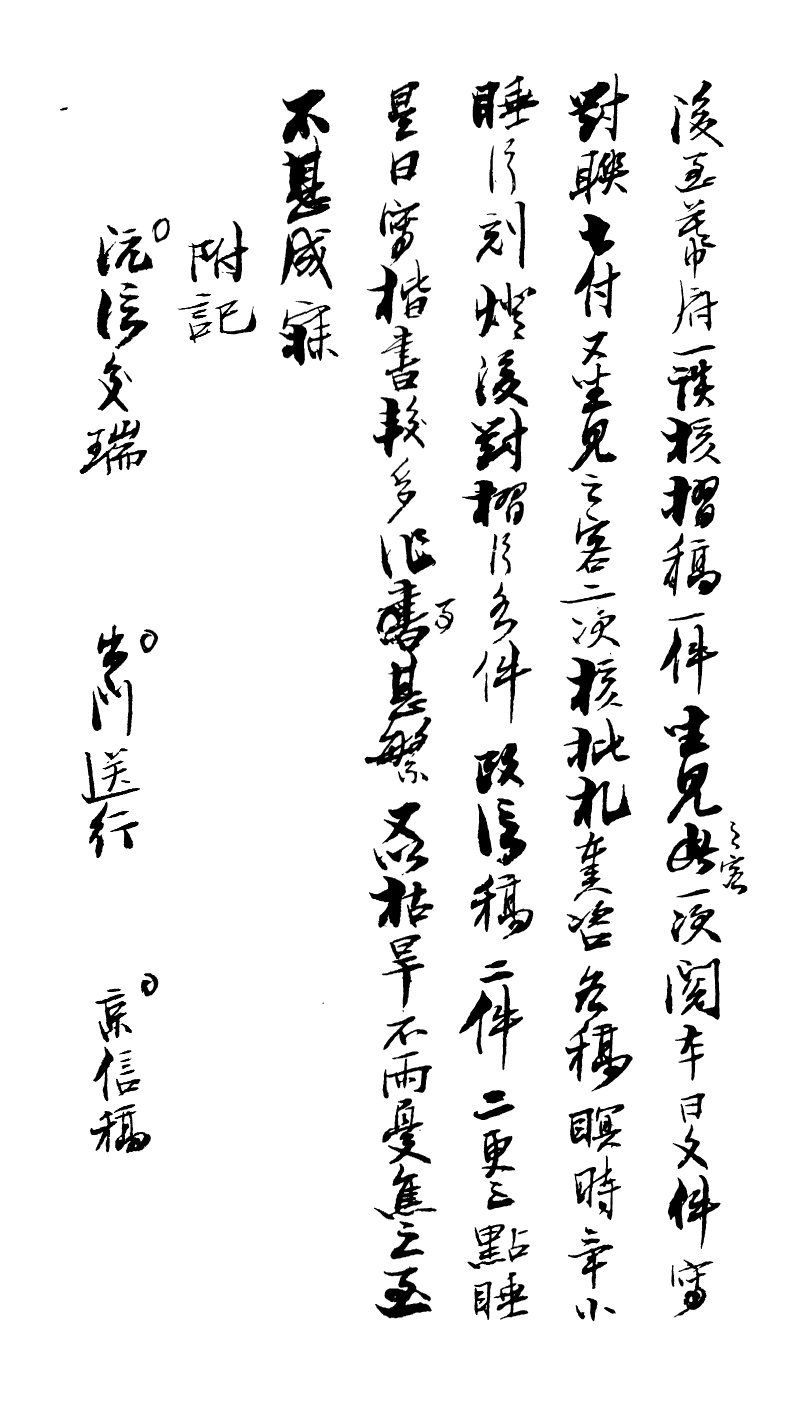 後至幕府一談核摺稿一件坐見之客一次閱本日文件寫
對聯七付又坐見之客二次核批札奏咨各稿暝時小
睡片刻燈後對摺片各件改信稿二件二更三點睡
是日寫楷書較多作事甚繁又以枯旱不雨憂焦之至
不甚成寐
附記
沅信交瑞 出門送行 京信稿